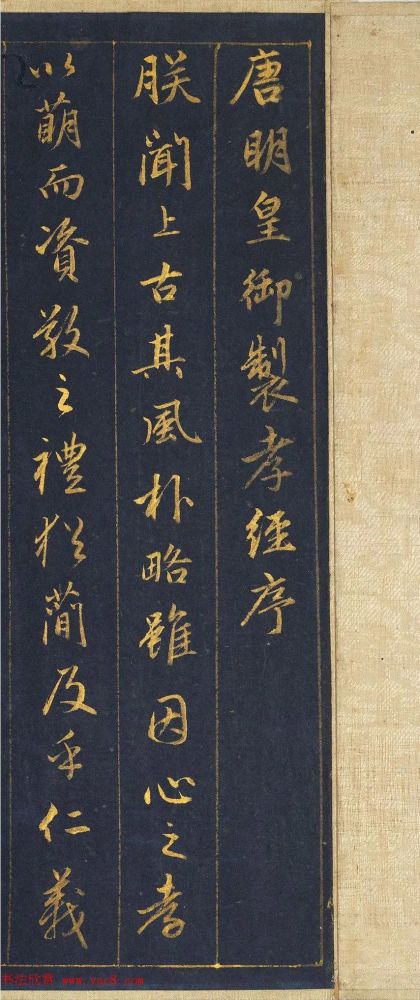 唐明皇御製孝經序
朕聞上古其風朴略雖因心之孝
以萌而資敬之禮猶蕳及乎仁義
书法欣赏 www.yac8.com